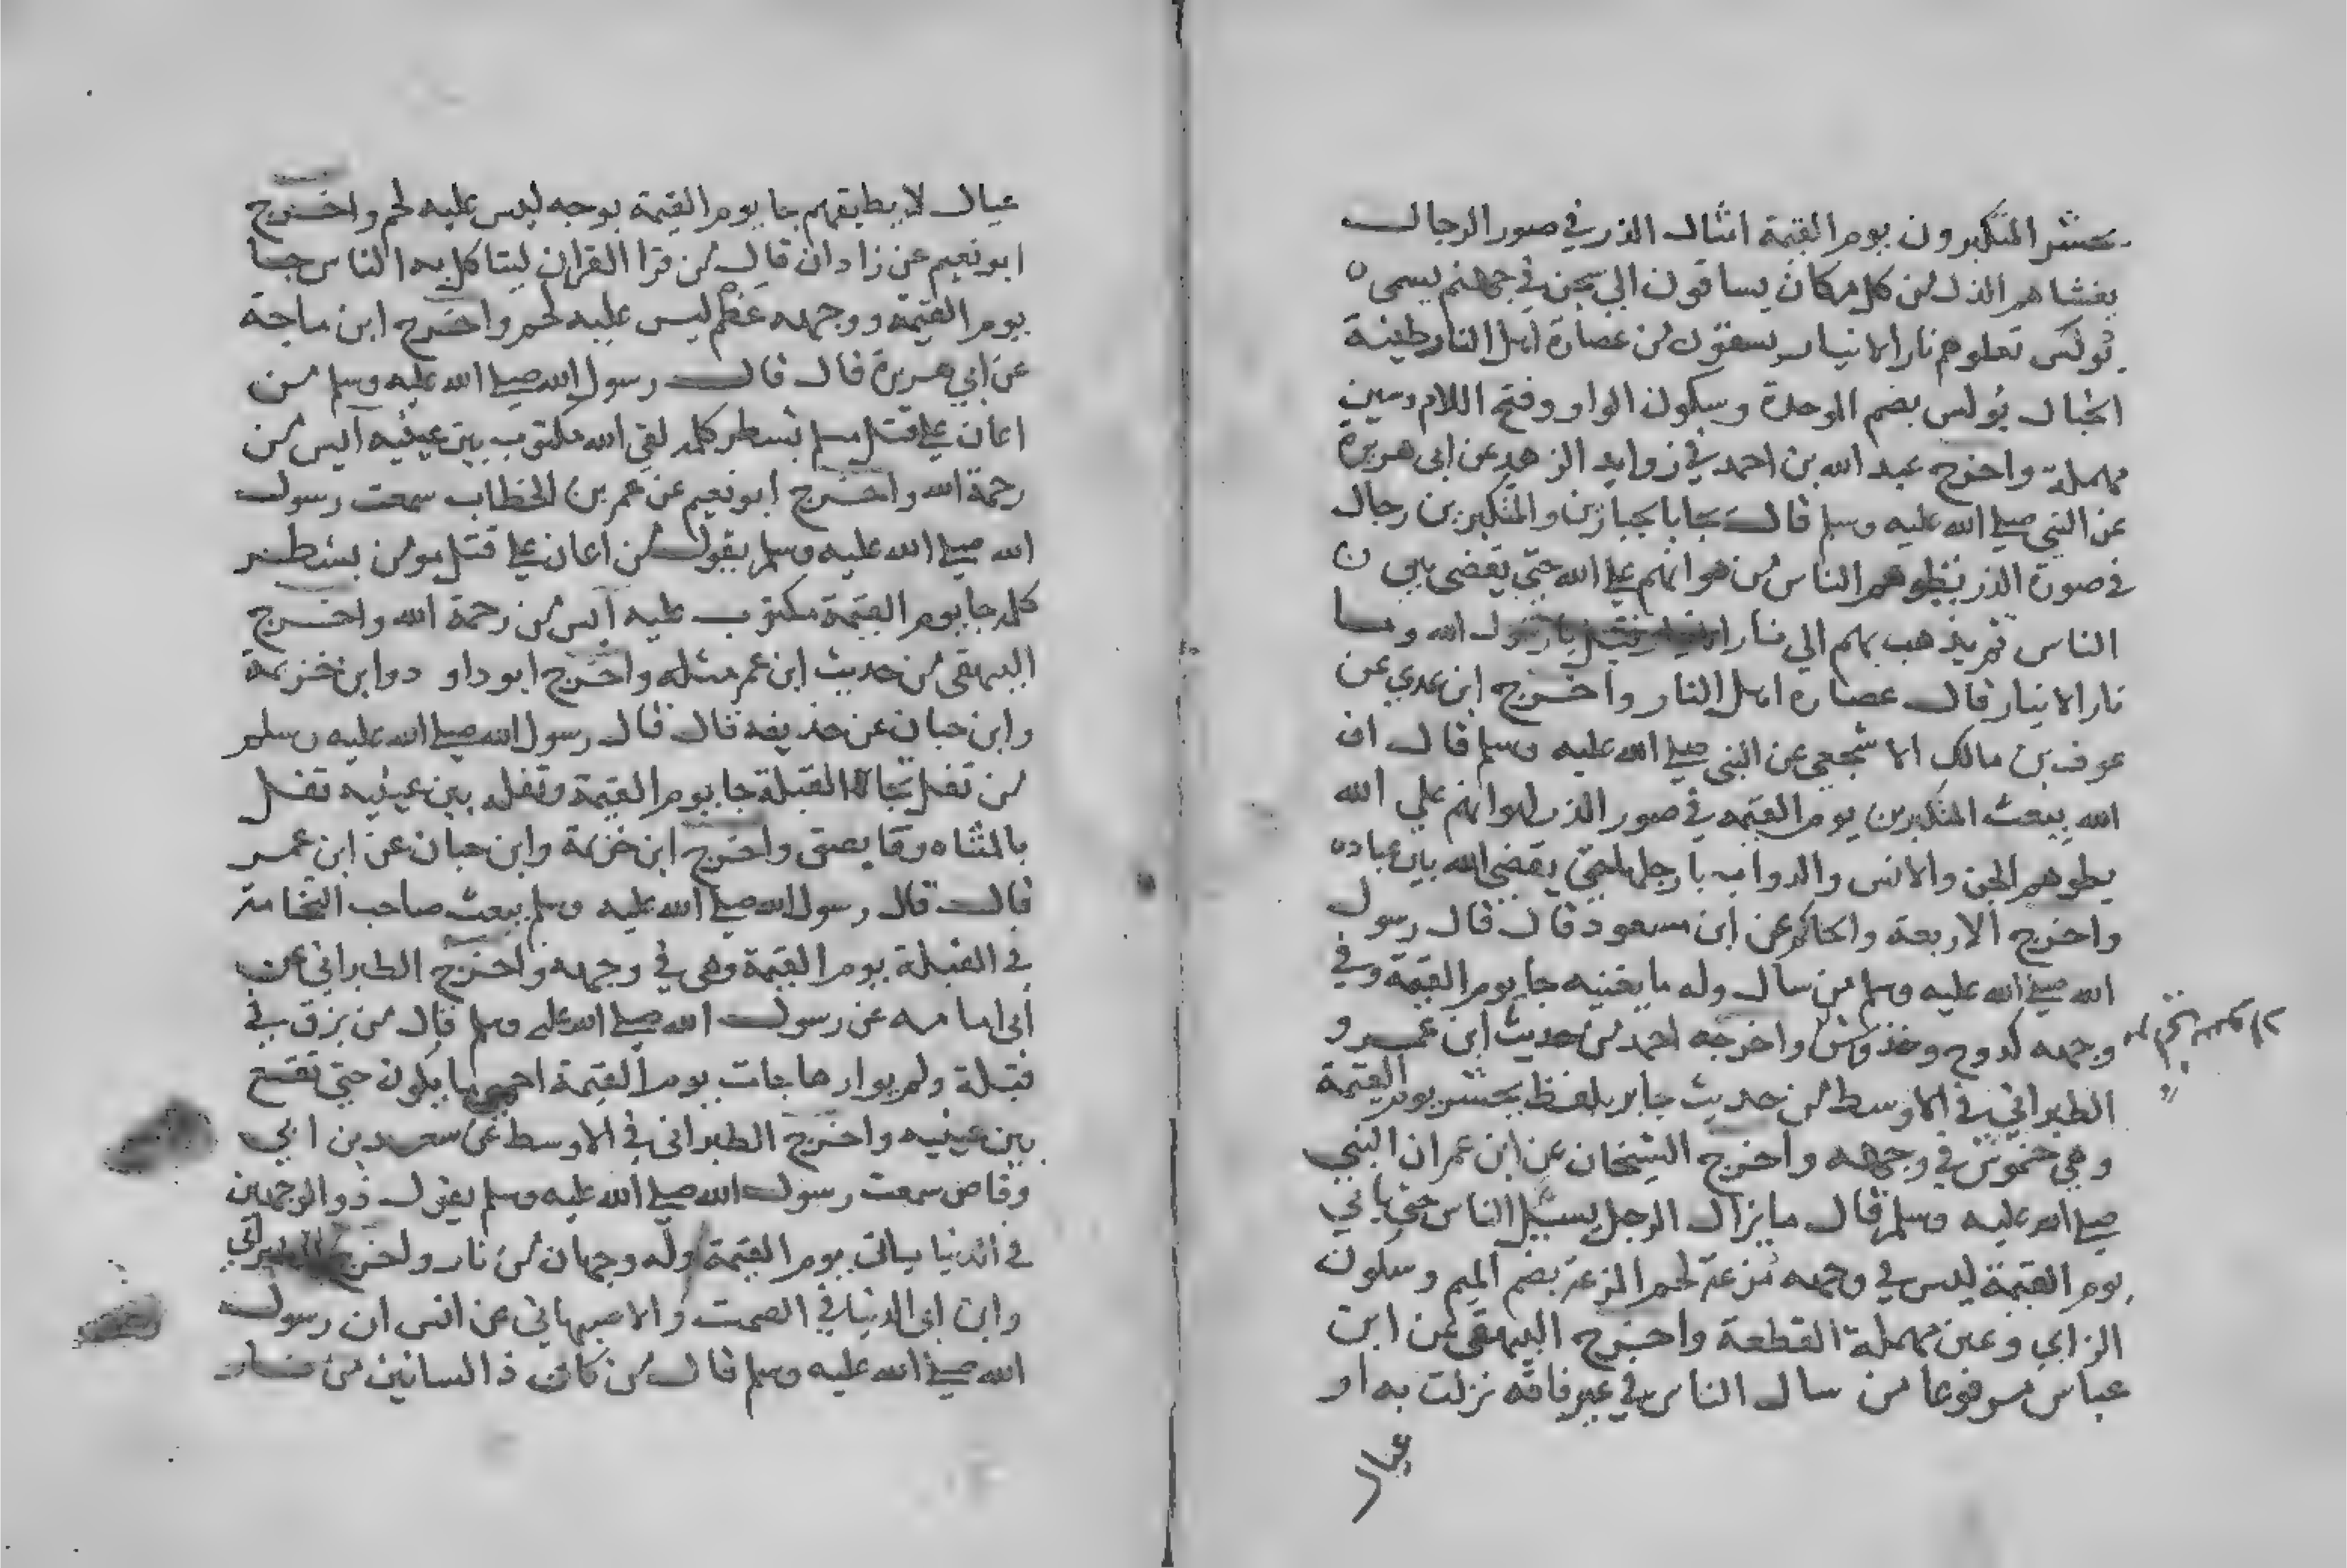 يحشر المتكبرون يوم القيمة امثال الذر في صور الرجال
يغشاهم الذل من كل مكان يساقون الي سجن في جهنم يسمى
بُولَس تعلوهم نار الانيار يسقون من عصارة اهل النار طينة
الخبال بُولس بضم الموحدة وسكون الواو وفتح اللام وسين
مهملة واخرج عبد الله بن احمد في زوايد الزهد عن ابى هريرة
عن النبي صلي الله عليه وسلم قال يجا بالجبارين والمتكبرين رجال
في صورة الذر يطوهم الناس من هوانهم علي الله حتي يقضي بين
الناس ثم يذهب بهم الي نار الانيار قيل يا رسول الله وما
نار الانيار قال عصارة اهل النار واخرج ابن عدي عن
عوف بن مالك الاشجعي عن النبي صلي الله عليه وسلم قال ان
الله يبعث المتكبرين يوم القيمة في صور الذر لهوانهم علي الله
يطوهم الجن والانس والدواب بارجلها حتي يقضي الله بين عباده
واخرج الاربعة والحاكم عن ابن مسعود قال قال رسول
الله صلي الله عليه وسلم من سال وله ما يغنيه جا يوم القيمة وفي
وجهه كدوح وخدوش واخرجه احمد من حديث ابن عمرو
الطبراني في الاوسط من حديث جابر بلفظ يحشر يوم القيمة
وهي خموش في وجهه واخرج الشيخان عن ابن عمر ان النبي
صلي الله عليه وسلم قال ما يزال الرجل يسئل الناس حتي ياتي
يوم القيمة ليس في وجهه مُزعة لحم المزعة بضم الميم وسكون
الزاي وعين مهملة القطعة واخرج البيهقي عن ابن
عباس مرفوعا من سال الناس في غير فاقة نزلت به او
عيال
عيال لا يطيقهم جا يوم القيمة بوجه ليس عليه لحم واخرج
ابو نعيم عن زادان قال من قرا القران ليتاكل به الناس جا
يوم القيمة ووجهه عَظْم ليس عليه لحم واخرج ابن ماجة
عن ابي هريرة قال قال رسول الله صلي الله عليه وسلم من
اعان علي قتل مسلم بشطر كلمه لقي الله مكتوب بين عينيه آيس من
رحمة الله واخرج ابو نعيم عن عمر بن الخطاب سمعت رسول
الله صلي الله عليه وسلم يقول من اعان علي قتل مومن بشطر
كلمه جا يوم القيمة مكتوب عليه آيس من رحمة الله واخرج
البيهقى من حديث ابن عمر مثله واخرج ابو داو د وابن خزيمة
وابن حبان عن حذيفه قال قال رسول الله صلي الله عليه وسلم
من تفل تجاه القبلة جا يوم القيمة وتفله بين عينيه تفل
بالمثناه وفا بصق واخرج ابن خزيمة وابن حبان عن ابن عمر
قال قال رسول الله صلي الله عليه وسلم يبعث صاحب النخامة
في القبلة يوم القيمة وهى في وجهه واخرج الطبراني عن
ابى امامه عن رسول الله صلي الله عليه وسلم قال من بزق في
قبلة ولم يوارها جات يوم القيمة احمى ما يكون حتي تقع
بين عينيه واخرج الطبراني في الاوسط عن سعد بن ابي
وقاص سمعت رسول الله صلي الله عليه وسلم يقول ذو الوجهين
في الدنيا ياتي يوم القيمة وله وجهان من نار واخرج الطبراني
وابن ابى الدنيا في الصمت والاصبهاني عن انس ان رسول
الله صلي الله عليه وسلم قال من كان ذا لسانين من نار